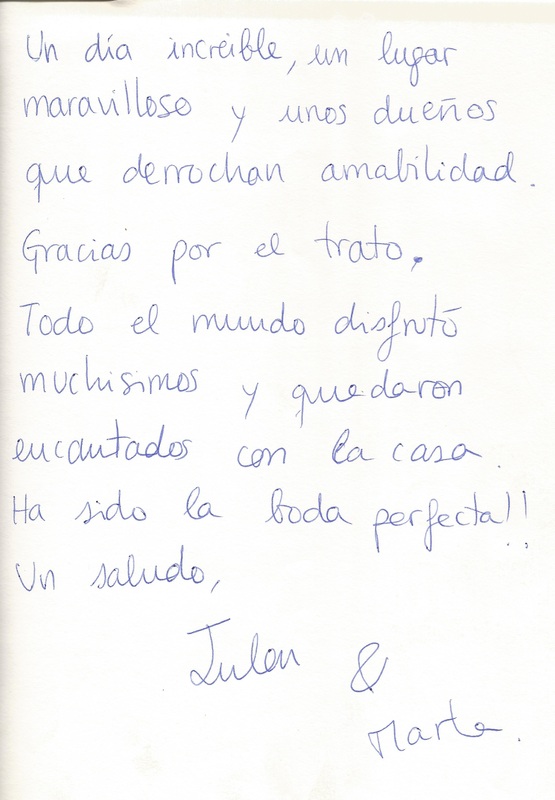 Un día increible, un lugar
maravilloso y unos dueños
que derrochan amabilidad.
Gracias por el trato.
Todo el mundo disfrutó
muchisimos y quedaron
encantados con la casa.
Ha sido la boda perfecta!!
Un saludo,
Julen &
Marta.